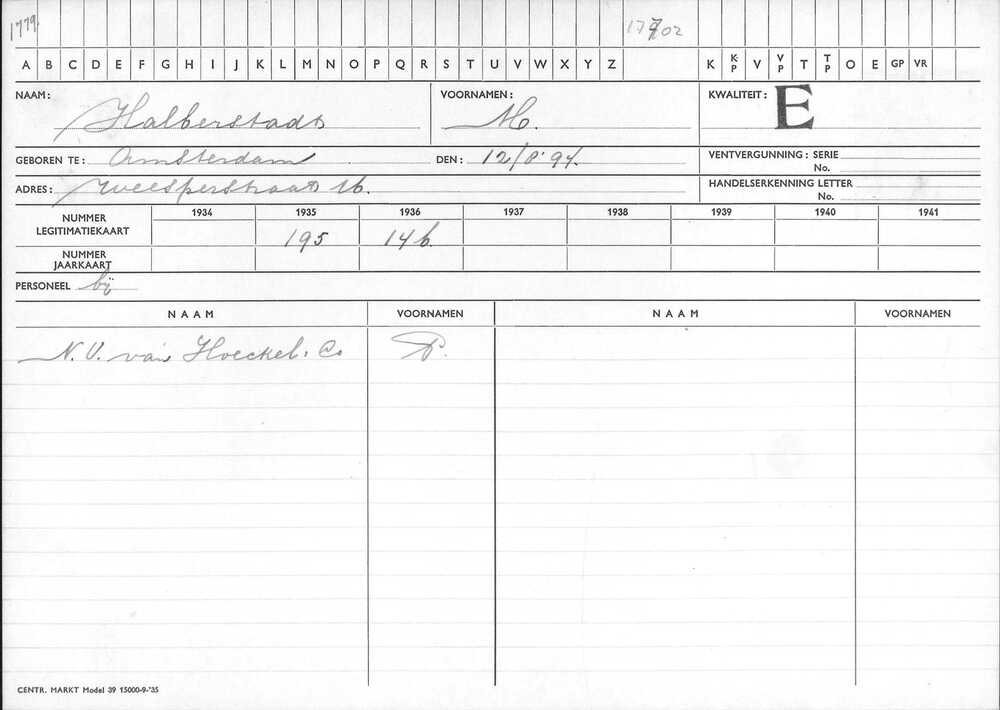 1779.
17702
A B C D E F G H I J K L M N O P Q R S T U V W X Y Z K K-P V V-P T T-P O E GP VR
NAAM: Halberstadt VOORNAMEN: M. KWALITEIT: E
GEBOREN TE: Amsterdam DEN: 12/8'94. VENTVERGUNNING: SERIE
No.
ADRES: Weesperstraat 16. HANDELSERKENNING LETTER
No.
1934 1935 1936 1937 1938 1939 1940 1941
NUMMER LEGITIMATIEKAART 195 146.
NUMMER JAARKAART
PERSONEEL bij
NAAM VOORNAMEN NAAM VOORNAMEN
N.V. van Hoeckel. Co P.
CENTR. MARKT Model 39 15000-9-'35